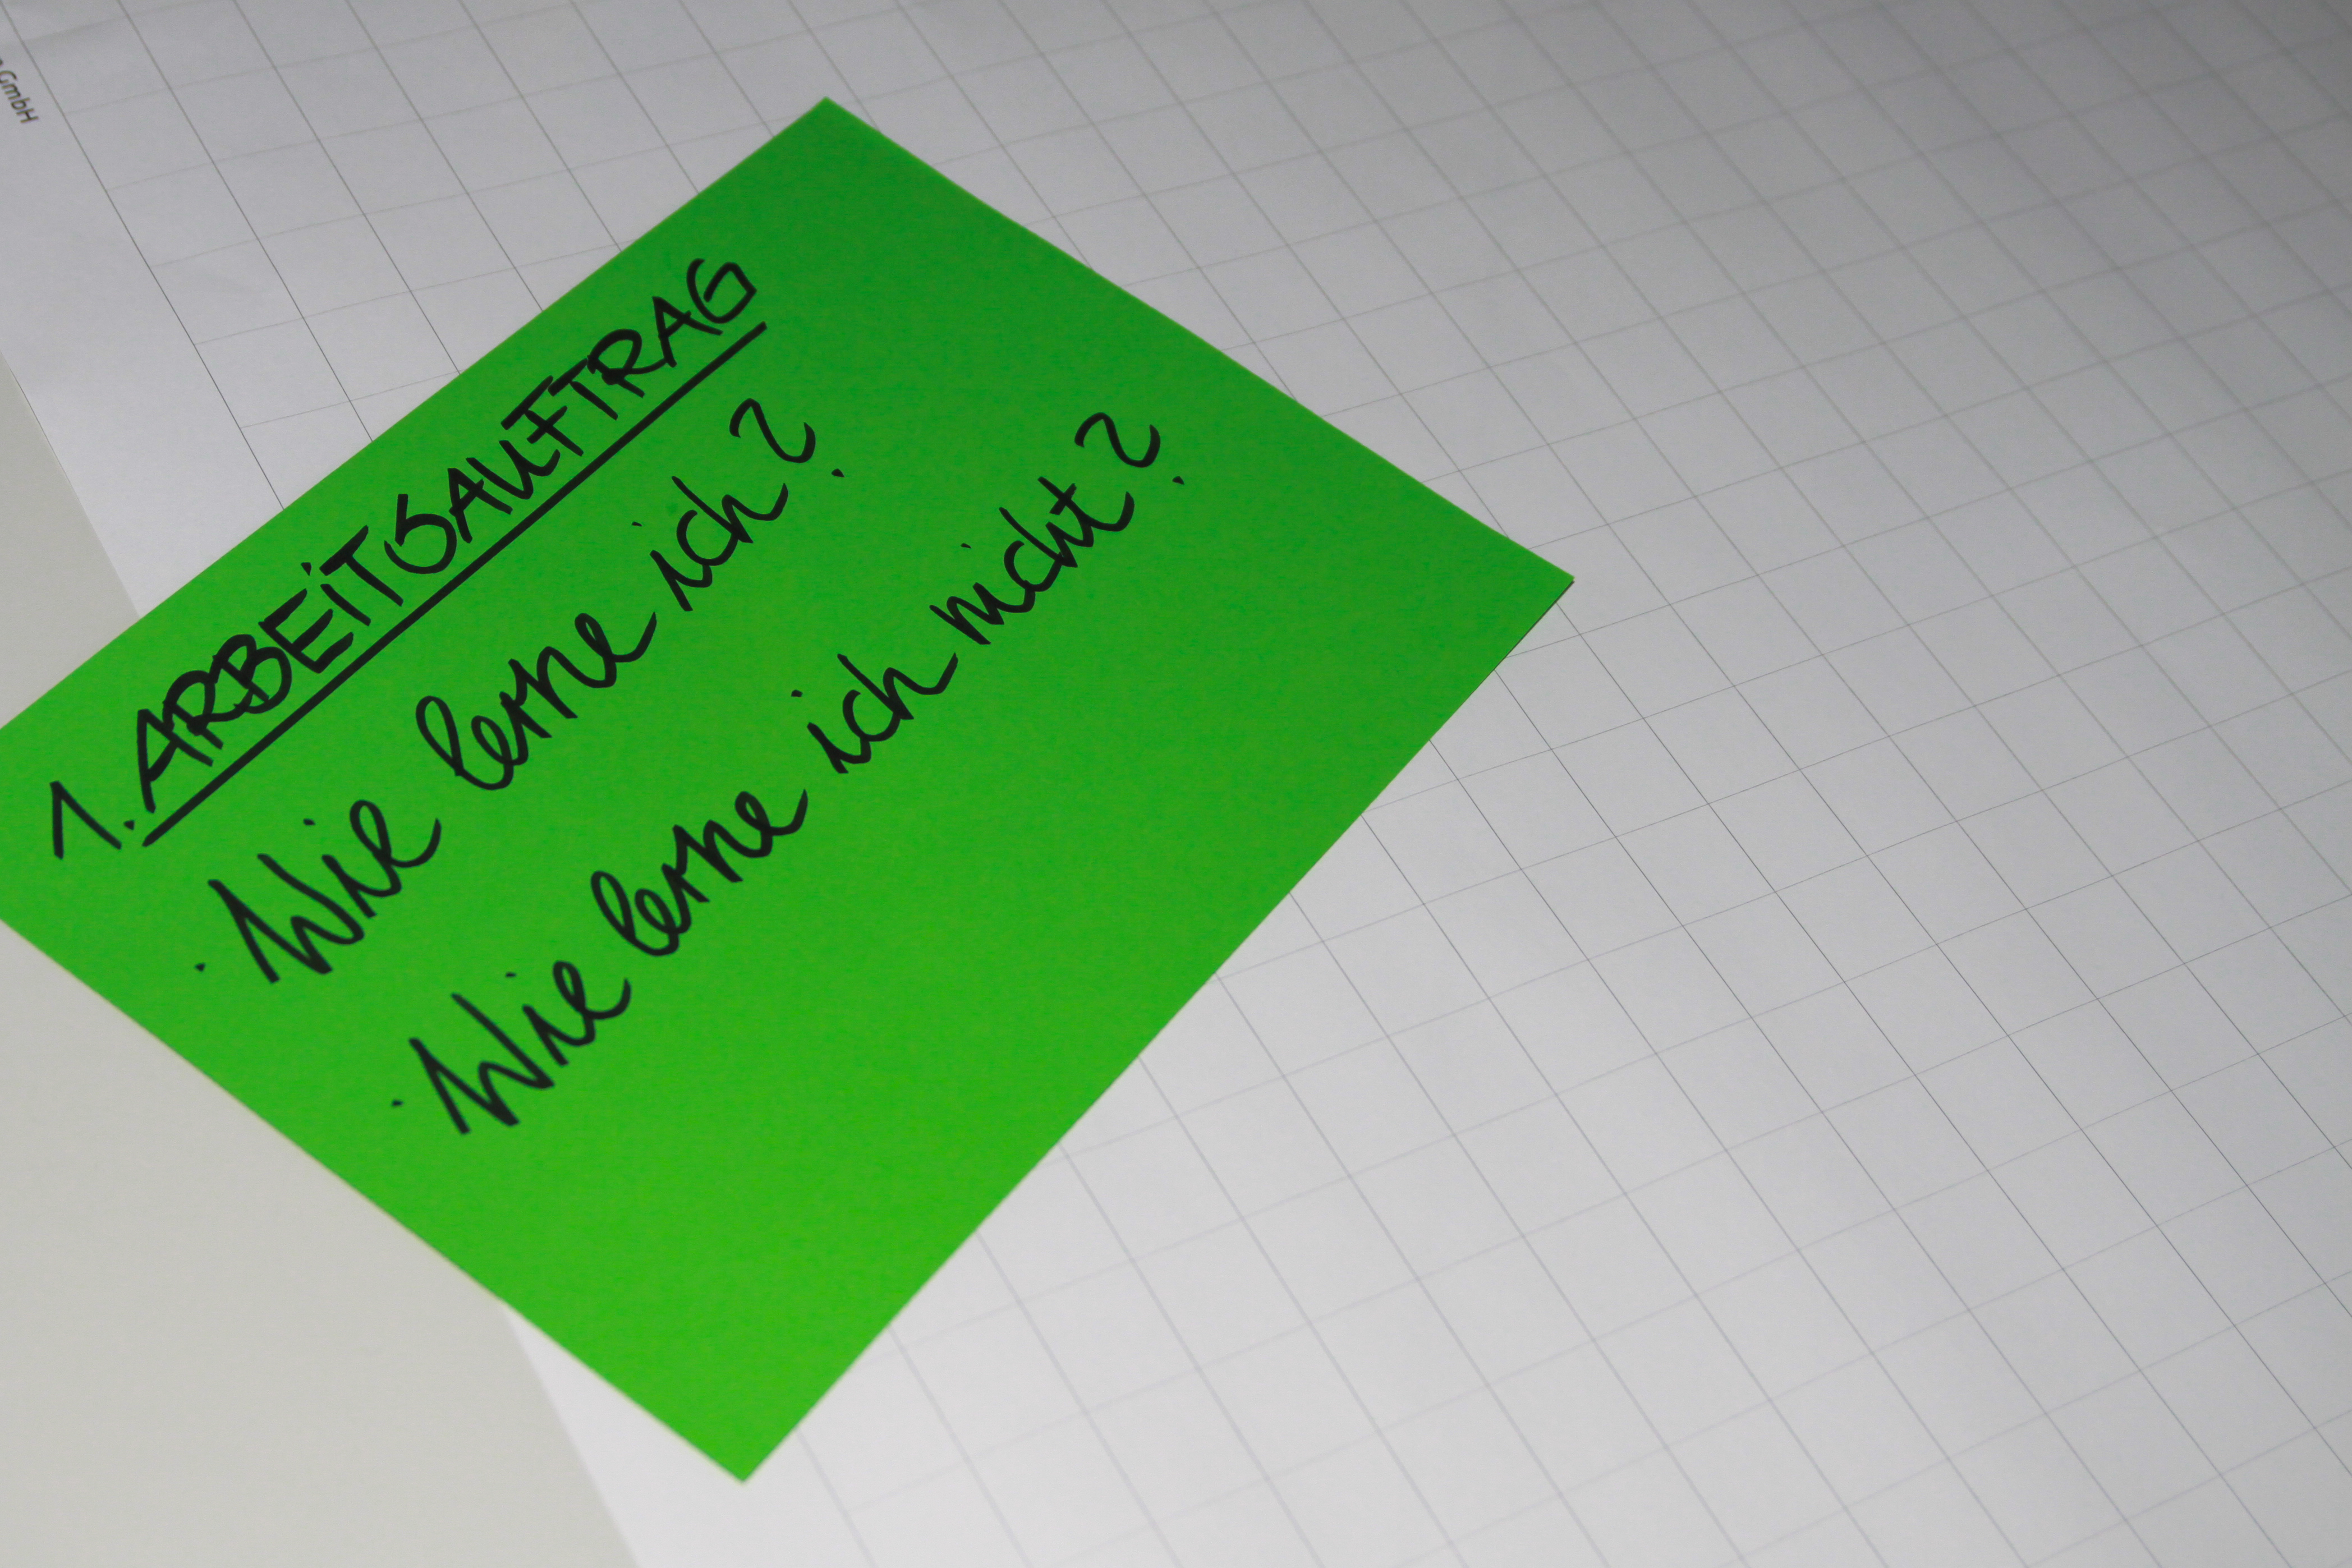 GmbH
1. ARBEITSAUFTRAG
· Wie lerne ich?
· Wie lerne ich nicht?